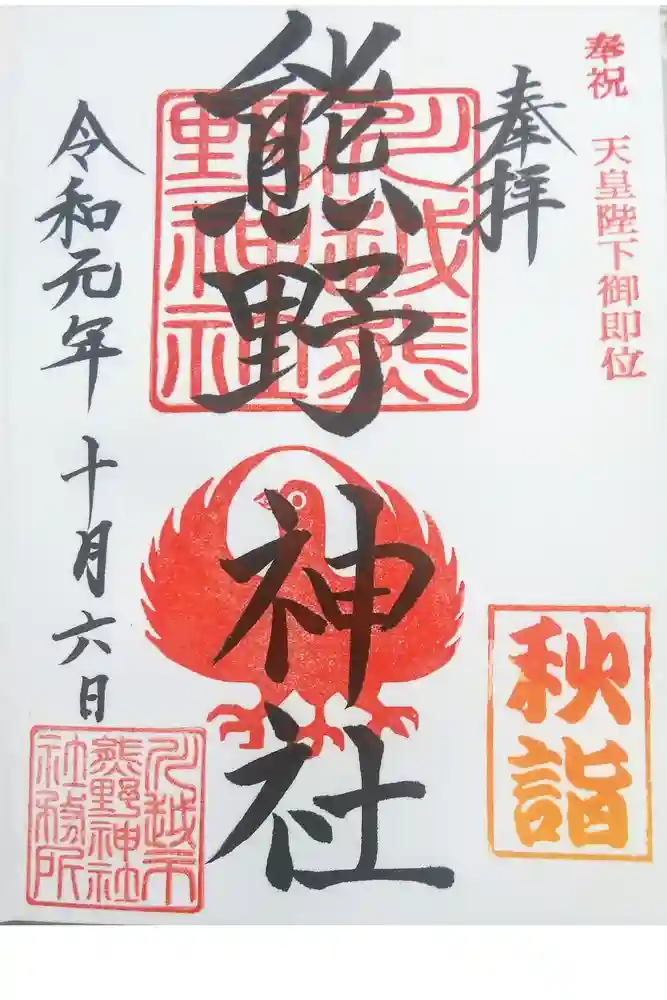 奉祝 天皇陛下御即位
奉拝
川越熊
野神社
熊野神社
秋詣
令和元年十月六日
川越市
熊野神社
社務所